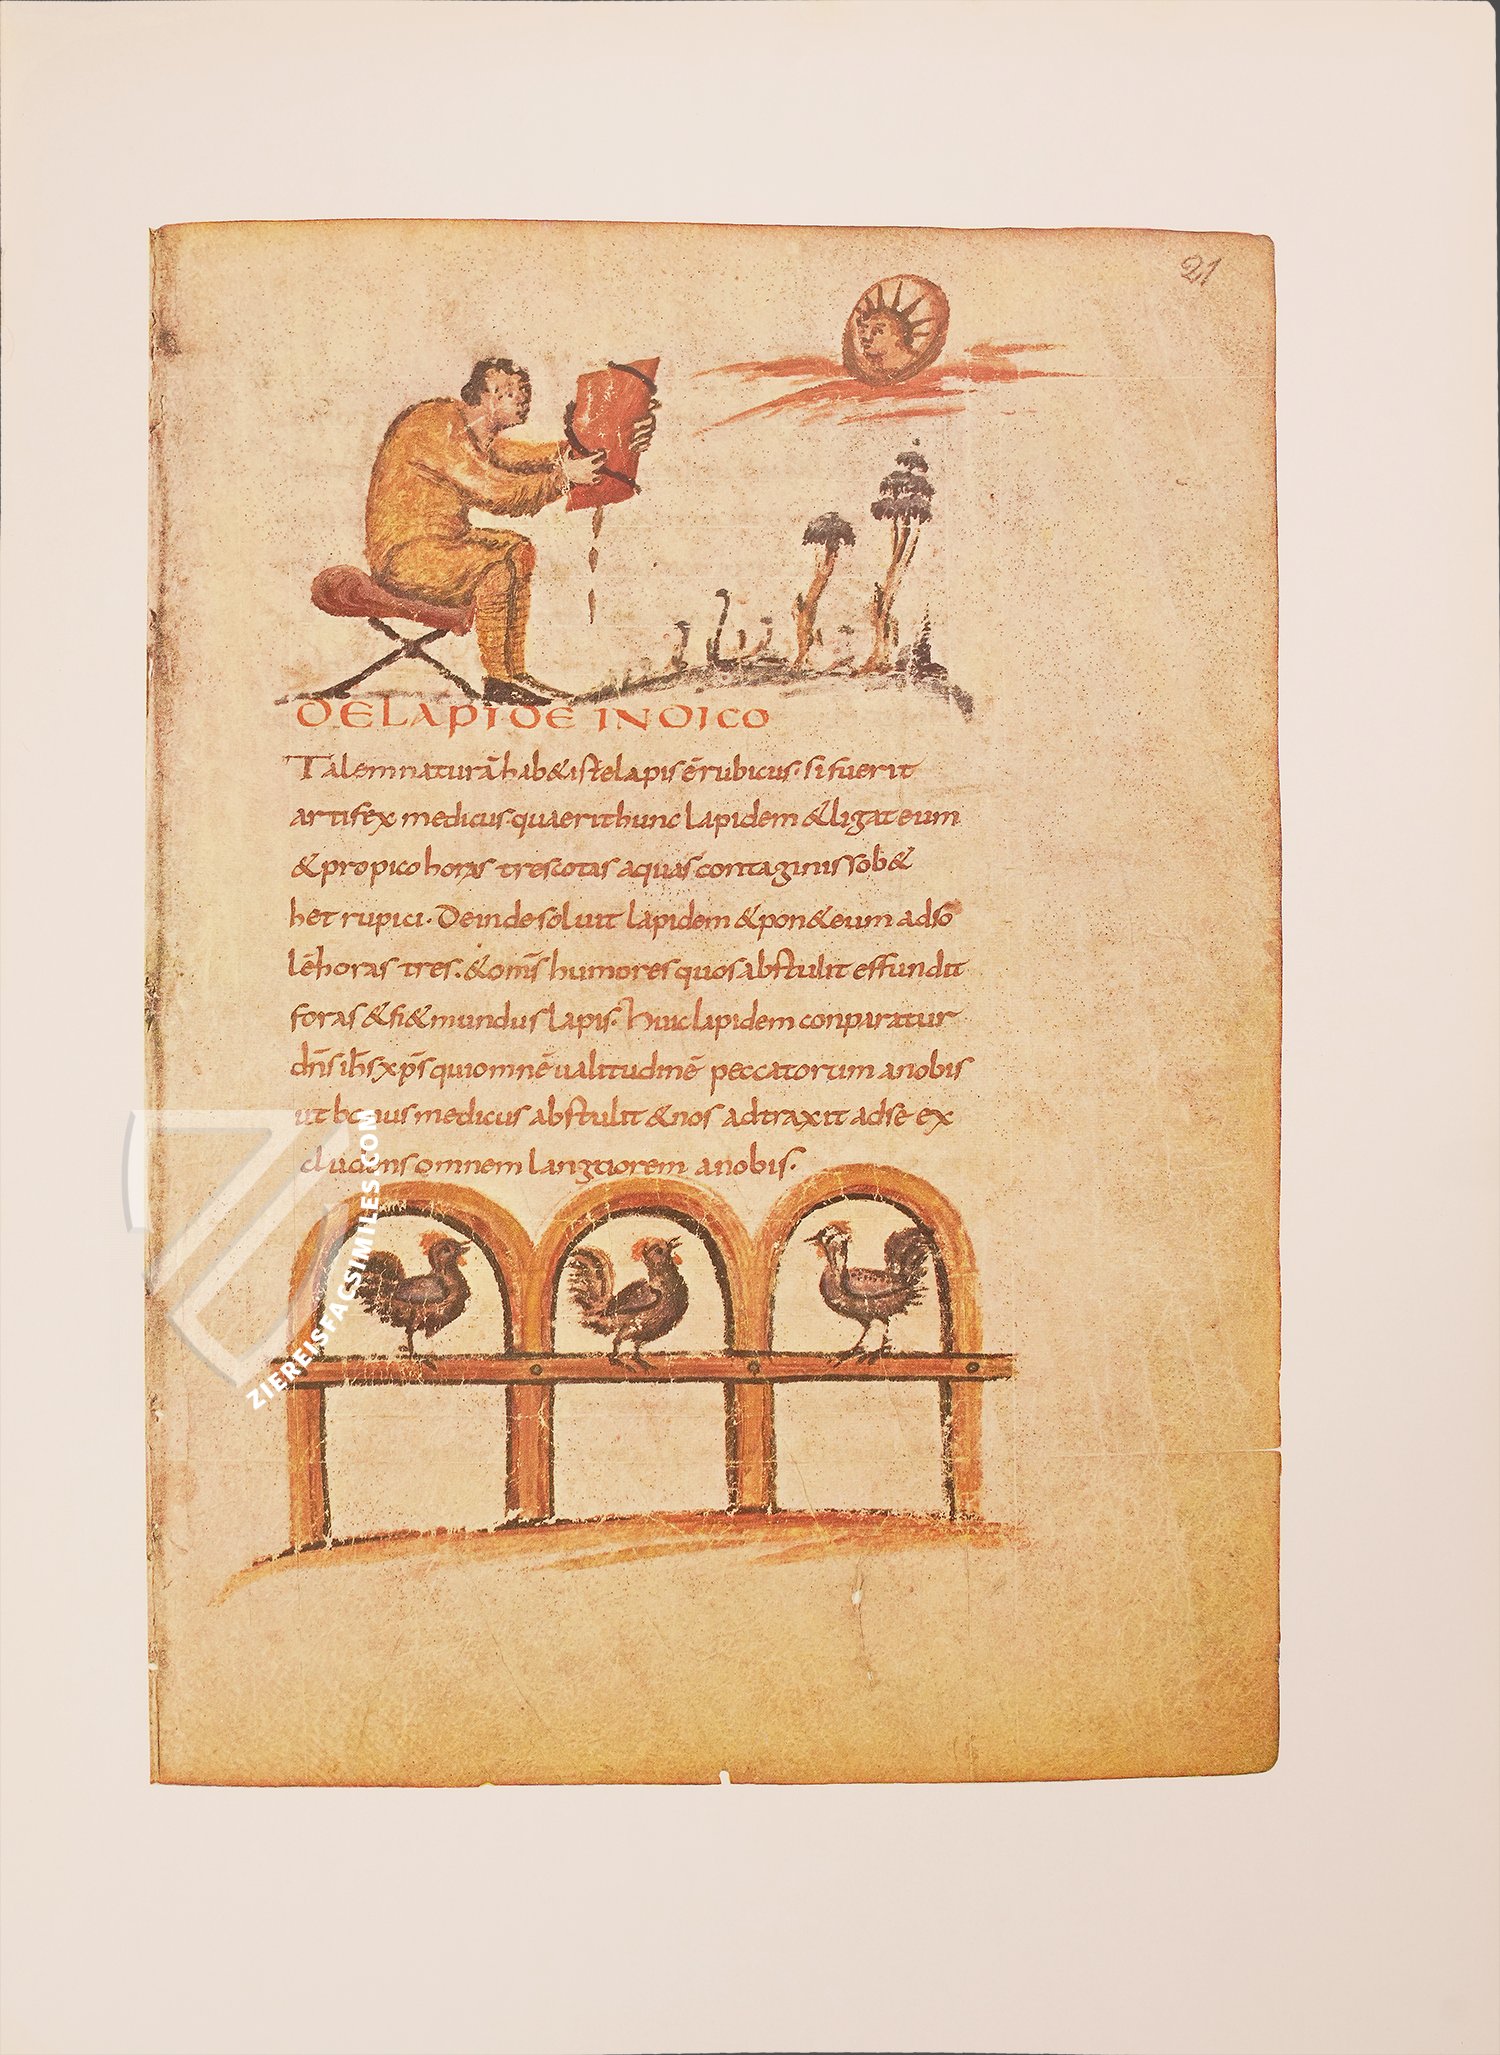 21
DE LAPIDE INDICO
Talem naturā hab& iste lapis ē rubicus· si fuerit
artifex medicus· quaerit hunc lapidem & ligat eum
& propico horas tres totas aquas contaginis
het rupici· Deinde soluit lapidem & pon& eum ad so
lē horas tres· & om̄s humores quos abstulit effundit
foras & fi& mundus lapis· Huic lapidem conparatur
dn̄s ih̄s xp̄s qui omnē ualitudinē peccatorum a nobis
ut bonus medicus abstulit & nos adtraxit ad se ex
cludens omnem langtiorem a nobis·
ZIEREISFACSIMILES.COM